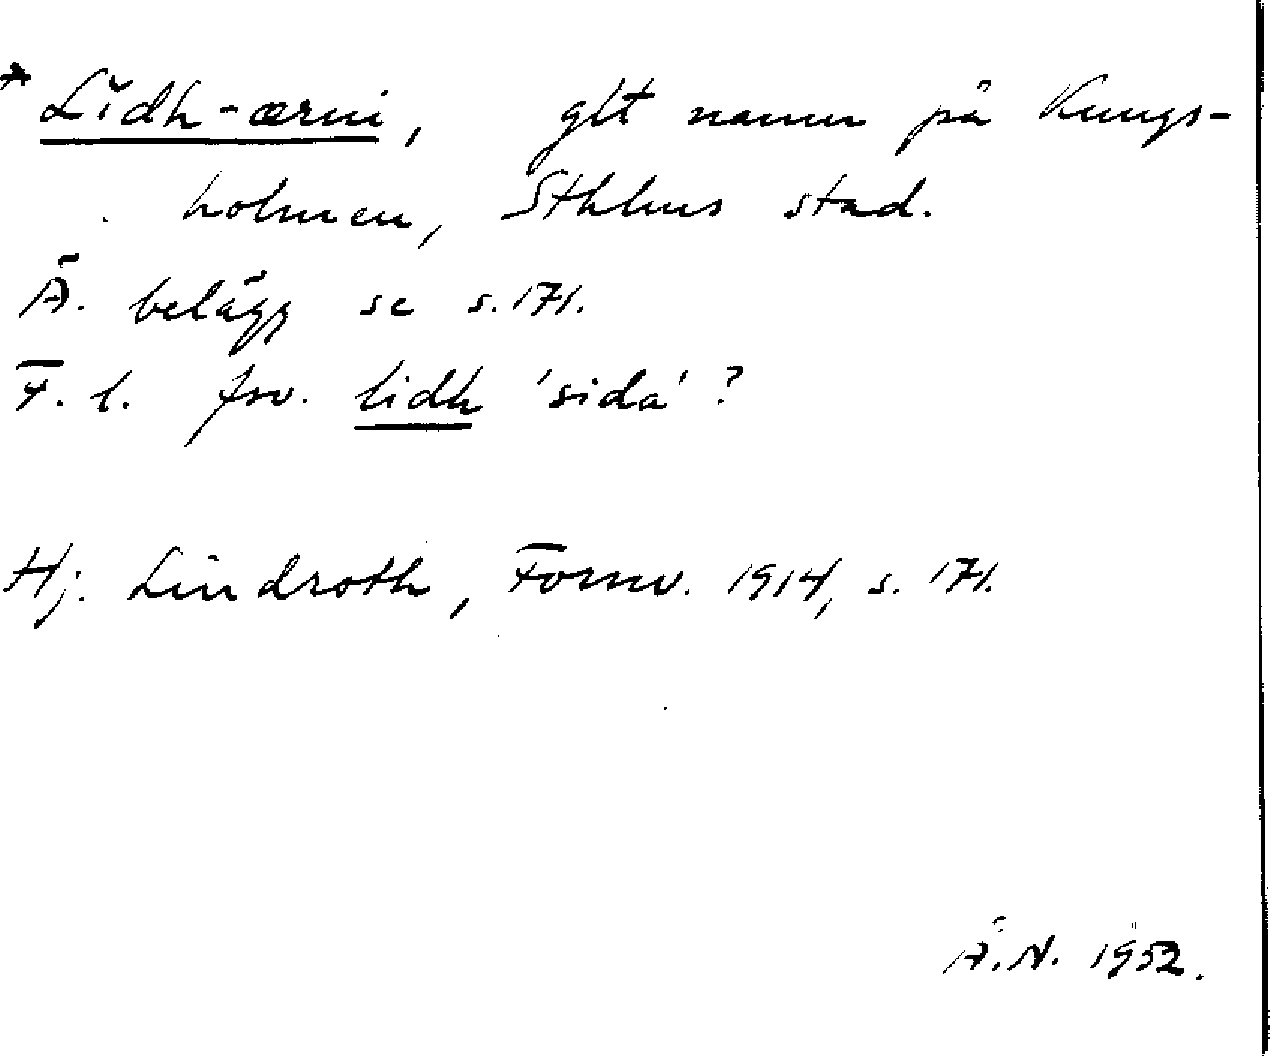 * Lĭdh-ærni, glt namn på Kungs-
holmen, Sthlms stad.
Ä. belägg se s. 171.
F. l. fsv. lidh 'sida'?
Hj. Lindroth, Fornv. 1914, s. 171.
Å.N. 1952.